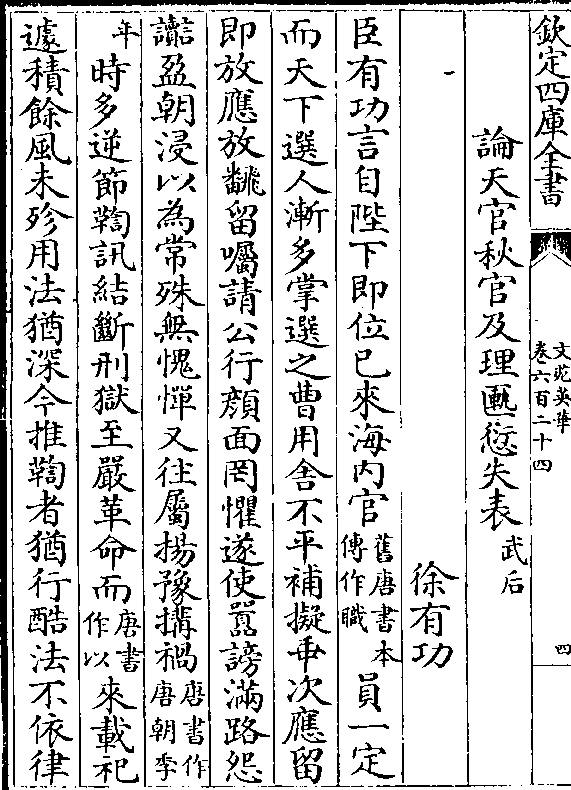 欽定四庫全書
文苑英華
卷六百二十四
四
論天官秋官及理匭愆失表武后
徐有功
臣有功言自陛下即位已來海内官舊唐書本傳作職員一定
而天下選人漸多掌選之曹用舍不平補擬乖次應留
即放應放翻留囑請公行顔面罔懼遂使嚚謗滿路怨
讟盈朝浸以為常殊無愧憚又往屬揚豫搆禍唐書作唐朝季
年時多逆節鞫訊結斷刑獄至嚴革命而唐書作以來載祀
遽積餘風未殄用法猶深今推鞫者猶行酷法不依律